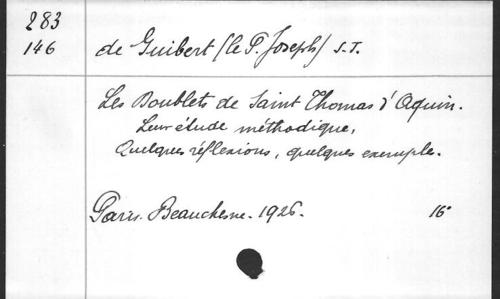 283
146
de Guibert (le P. Joseph) S.J.
Les Doublets de Saint Thomas d'Aquin.
Leur étude méthodique,
Quelques réflexions, quelques exemples.
Paris. Beauchesne. 1926. 16°